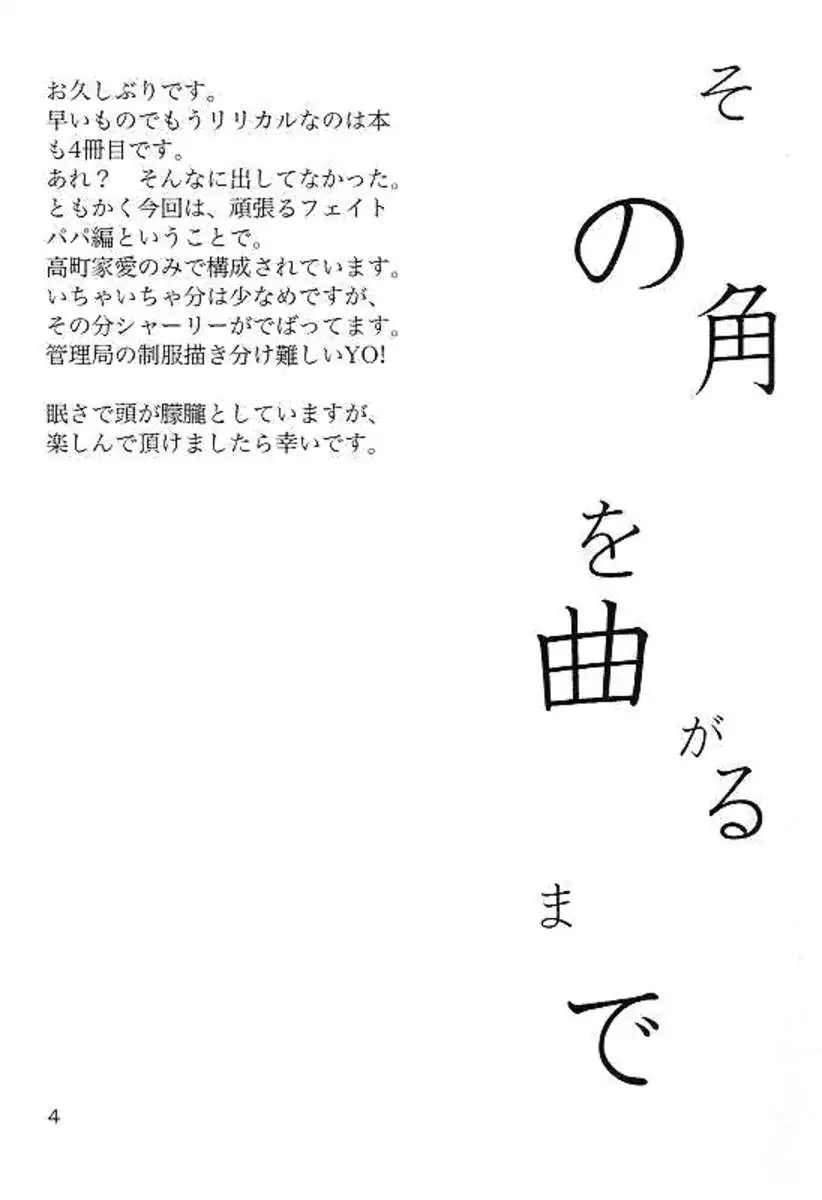 その角を曲がるまで
お久しぶりです。
早いものでもうリリカルなのは本
も4冊目です。
あれ？　そんなに出してなかった。
ともかく今回は、頑張るフェイト
パパ編ということで。
高町家愛のみで構成されています。
いちゃいちゃ分は少なめですが、
その分シャーリーがでばってます。
管理局の制服描き分け難しいYO!

眠さで頭が朦朧としていますが、
楽しんで頂けましたら幸いです。
4